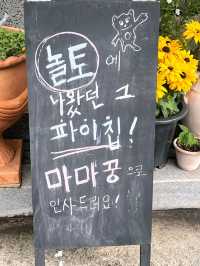 놀토에
나왔던 그
파이칩!
마마꿍으로
인사드려요!